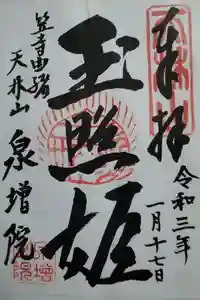 奉拝
令和三年
一月十七日
玉照姫
笠寺由緒
天林山
泉増院